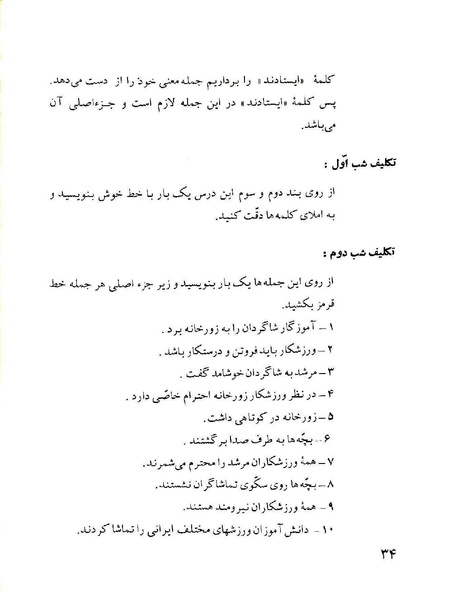 کلمهٔ «ایستادند» را برداریم جمله معنی خود را از دست می‌دهد.
پس کلمهٔ «ایستادند» در این جمله لازم است و جزءاصلی آن
می‌باشد.
تکلیف شب اوّل :
از روی بند دوم و سوم این درس یک بار با خط خوش بنویسید و
به املای کلمه‌ها دقّت کنید.
تکلیف شب دوم :
از روی این جمله‌ها یک بار بنویسید و زیر جزء اصلی هر جمله خط
قرمز بکشید.
۱ــ آموزگار شاگردان را به زورخانه برد .
۲ــ ورزشکار باید فروتن و درستکار باشد .
۳ــ مرشد به شاگردان خوشامد گفت .
۴ــ در نظر ورزشکار زورخانه احترام خاصّی دارد .
۵ــ زورخانه در کوتاهی داشت.
۶ــ بچّه‌ها به طرف صدا برگشتند .
۷ــ همهٔ ورزشکاران مرشد را محترم می‌شمرند.
۸ــ بچّه‌ها روی سکّوی تماشاگران نشستند.
۹ــ همهٔ ورزشکاران نیرومند هستند.
۱۰ــ دانش‌آموزان ورزشهای مختلف ایرانی را تماشا کردند.
۳۴